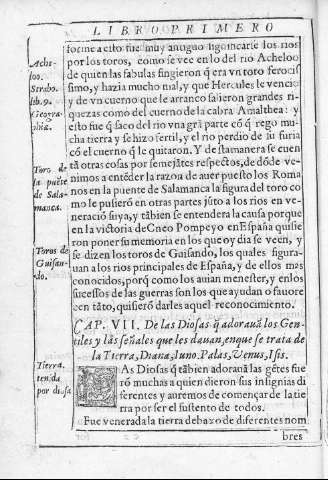 LIBRO PRIMERO
forme a esto fue muy antiguo figõincarle los rios
por los toros, como se vee en lo del rio Acheloo
de quien las fabulas fingieron q̃ era vn toro ferocis
simo, y hazia mucho mal, y que Hercules le vencio
y de vn cuerno que le arranco salieron grandes ri-
quezas como del cuerno de la cabra Amalthea: y
esto fue q̃ saco del rio vna grã parte cõ q̃ rego mu
cha tierra y se hizo fertil, y el rio perdio de su furia
cõ el cuerno q̃ le quitaron. Y de sta manera se cuen
tã otras cosas por semejãtes respectos, de dõde ve-
nimos a entẽder la razõn de auer puesto los Roma
nos en la puente de Salamanca la figura del toro co
mo le pusierõ en otras partes jũto a los rios en ve-
neraciõ suya, y tãbien se entendera la causa porque
en la victoria de Cneo Pompeyo en España quisie
ron poner su memoria en los que oy dia se veen, y
se dizen los toros de Guisando, los quales figura-
uan a los rios principales de España, y de ellos mas
conocidos, porq̃ como los auian menester, y en los
sucessos de las guerras son los que ayudan o fauore
cen tãto, quisierõ darles aquel reconocimiento.
Ache-
loo.
Strabo.
lib. 9.
Geogra-
phia.
Toro de
la puẽte
de Sala-
manca.
Toros de
Guisan-
do.
CAP. VII. De las Diosas q̃ adorauã los Gen-
tiles y las señales que les dauan, en que se trata de
la Tierra, Diana, Iuno, Palas, Venus, Isis.
Tierra
tenida
por diosa
LAs Diosas q̃ tãbien adorauã las gẽtes fue
rõ muchas a quien dieron sus insignias di
ferentes y auremos de començar de la tie
rra por ser el sustento de todos.
Fue venerada la tierra debaxo de diferentes nom
bres